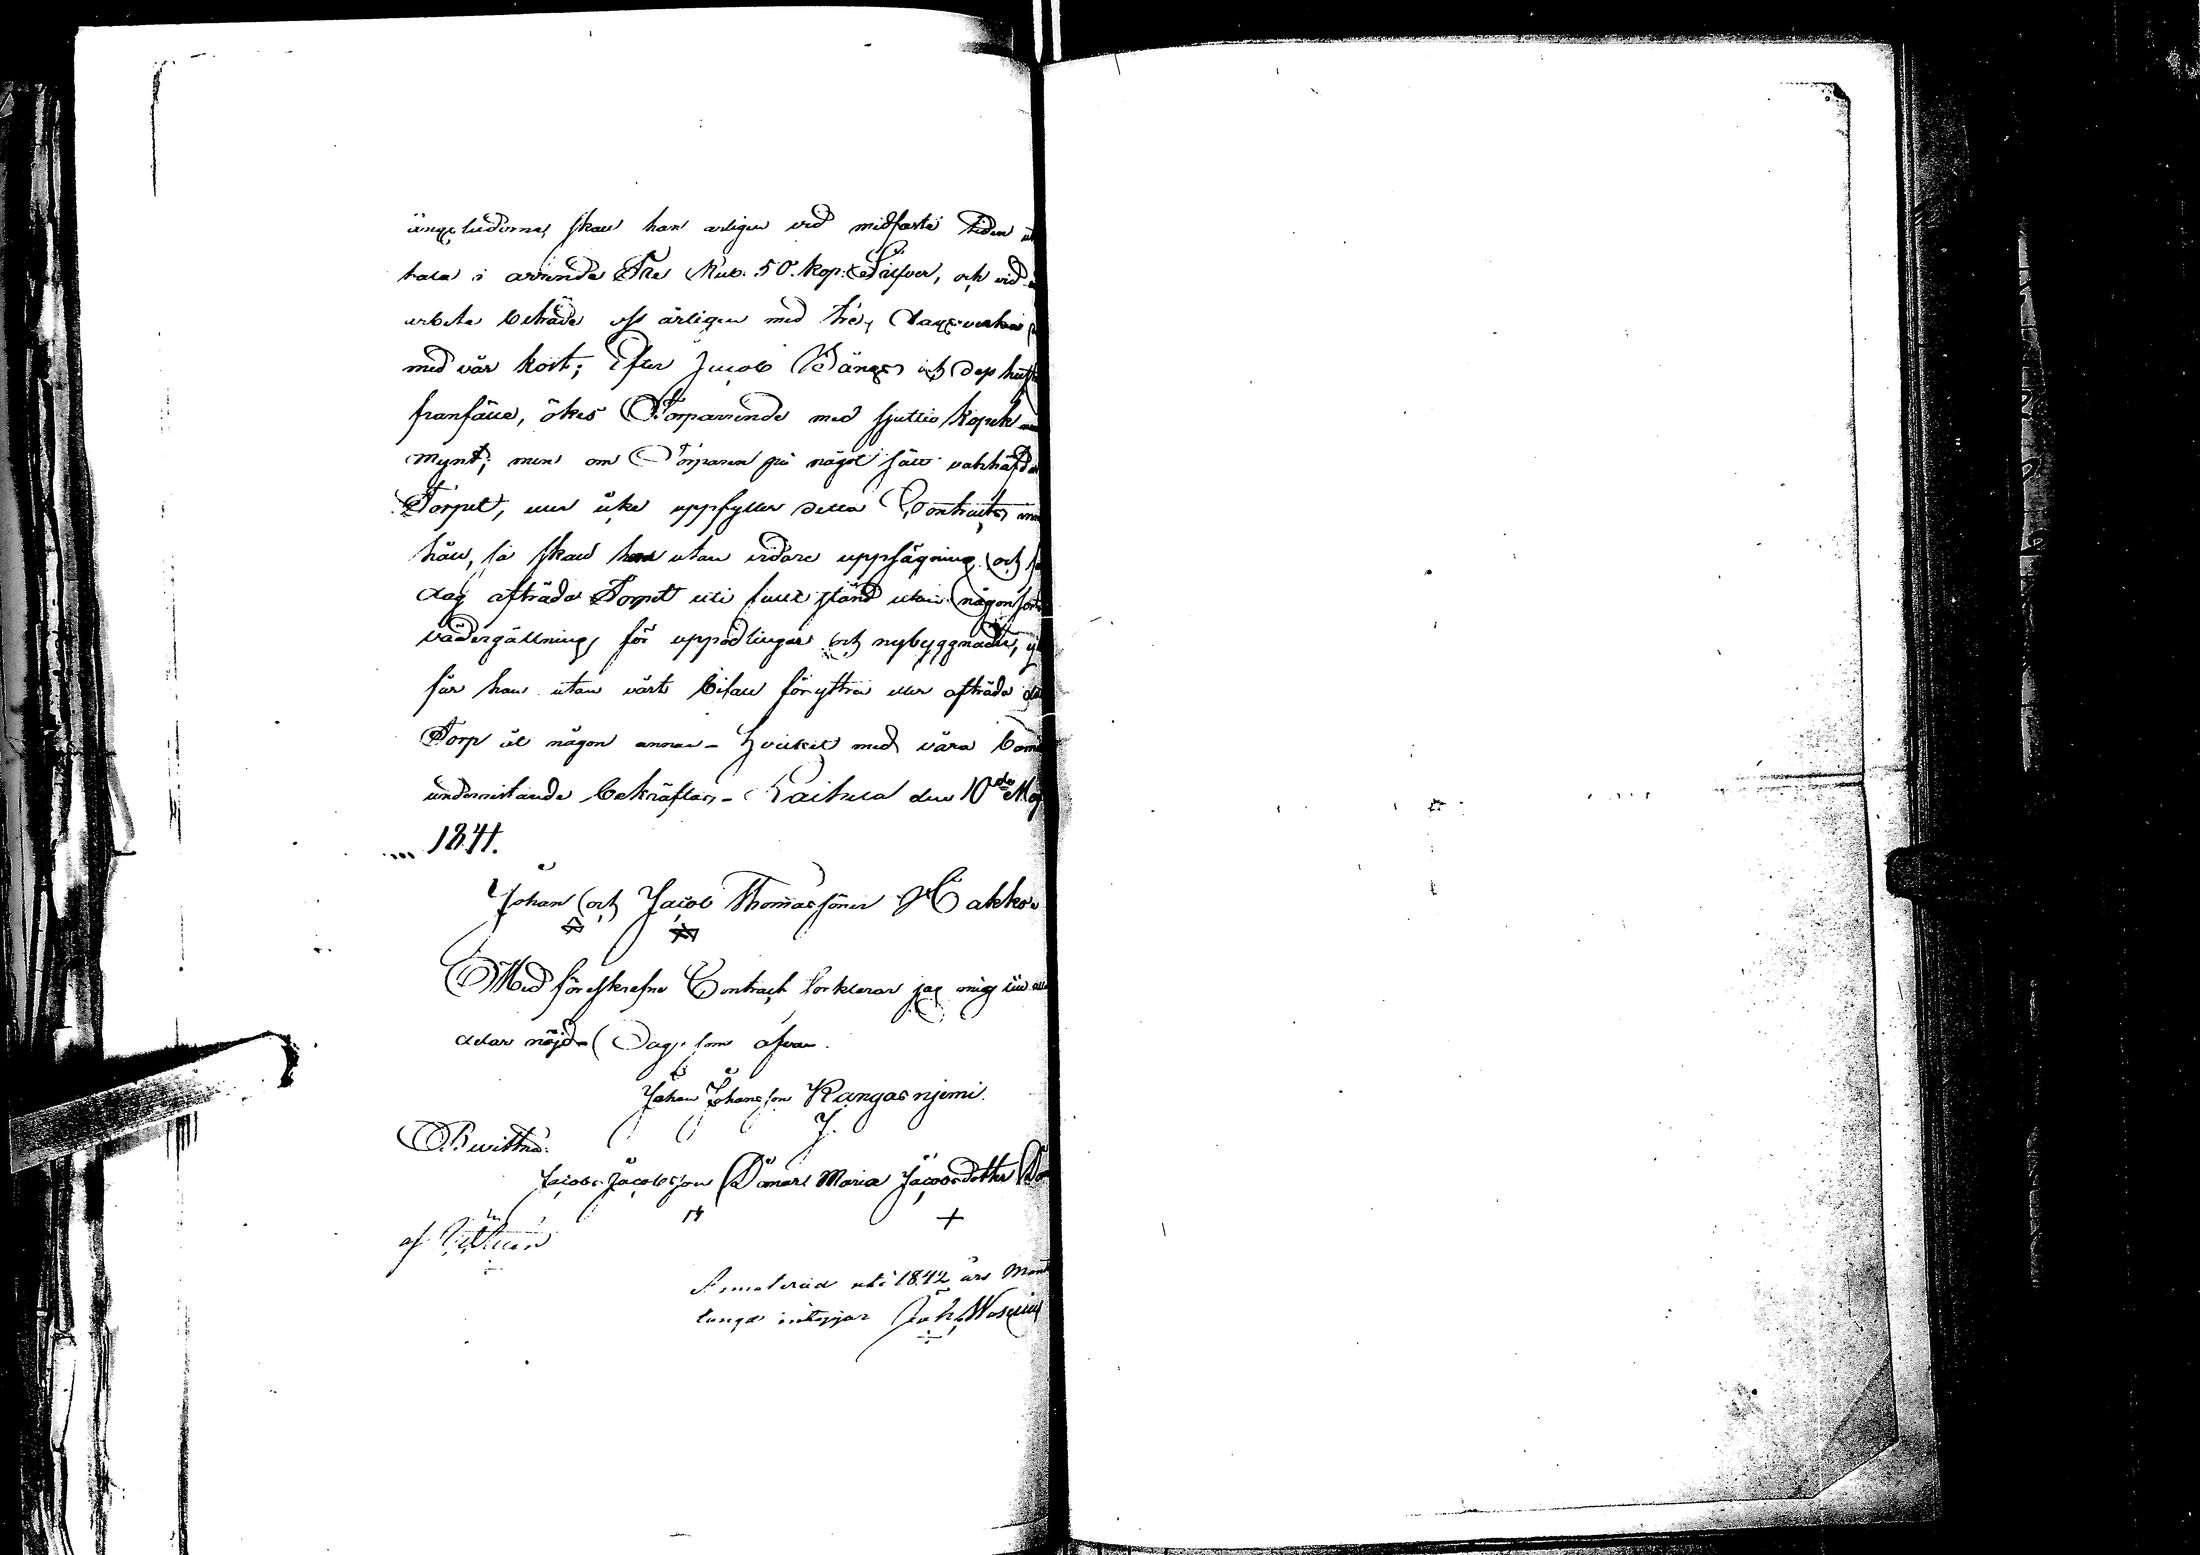 ängsludornas skall han årligen vid midfasta tiden
tala i arrende Tre Rub. 50. kop. Silfver, och vid
arbete biträda oss årligen med tre, Dagsverken
med vår kost; Efter Jacob Bängs och dess
franfälle, ökes Torparrende med sjuttio kopek
mynt; men om Torparen på något sätt vahhäfdar
Torpet, eller icke uppfyller detta Contracts inne
håll, så skall han utan vidare uppsägning och
dag afträda Torpet uti fullt stånd utan någon
vädergällning för uppodlingar och nybyggnader,
får han utan vårt bifall föryttra eller afträda
Torp åt någon annan - Hvilket med våra
underritande bekräftas - Laihela den 10de Maj
1841.
Johan och Jacob Thomassöner Hakko
Med föreskrefne Contract förklarar jag mig till alla
delar nöjd - Dag som ofvan.
Johan Johansson Kangasnjemi.
Bevittna:
Jacob Jacobsson Maria Jacobsdotter
af
uti 1842 års
tings intygar Joh.